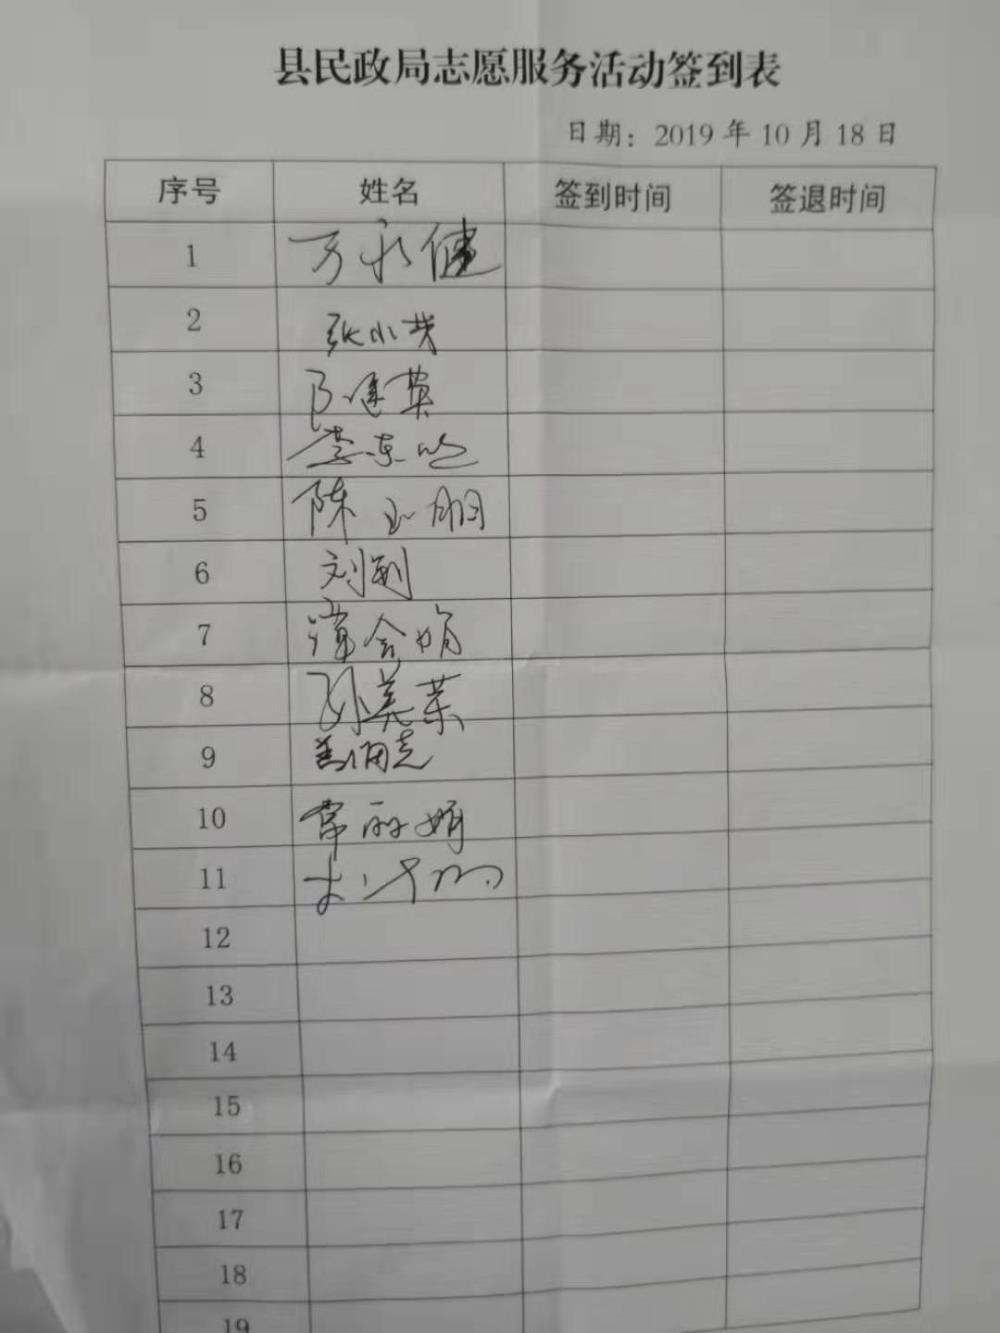 县民政局志愿服务活动签到表
日期：2019年10月18日
序号 姓名 签到时间 签退时间
1 万永健
2 张小芳
3 陈建英
4 李东
5 陈玉娟
6 刘利
7 谭会娟
8 孙美荣
9
10 常丽娟
11
12
13
14
15
16
17
18
19